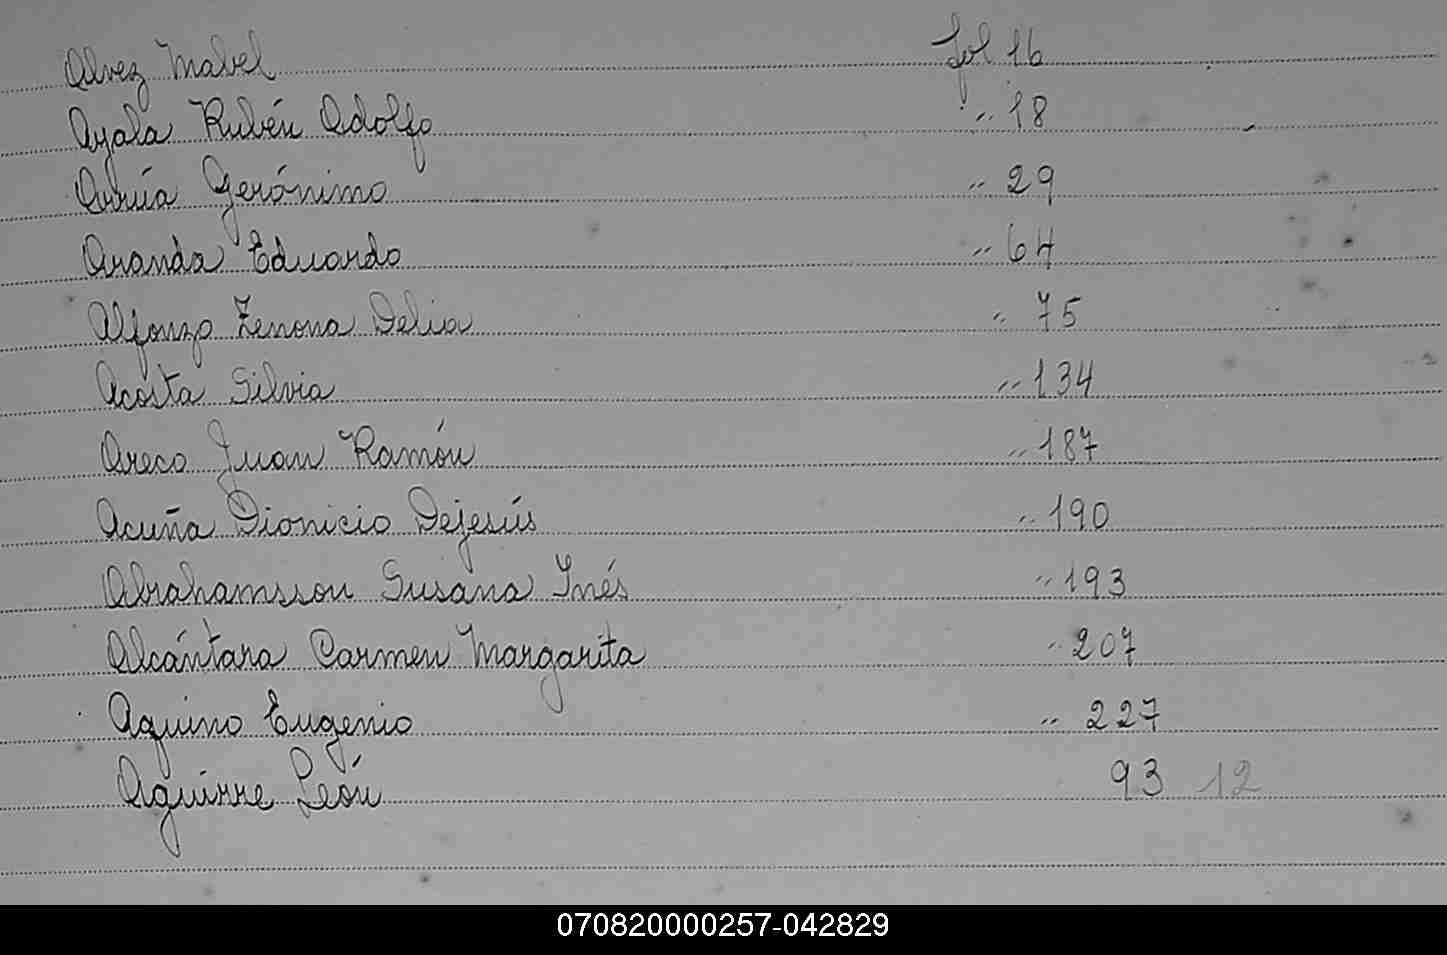 Alvez Mabel fol 16
Ayala Rubén Adolfo " 18
Arrúa Gerónimo " 29
Aranda Eduardo " 64
Alfonzo Zenona Delia " 75
Acosta Silvia " 134
Areco Juan Ramón " 187
Acuña Dionicio Dejesús " 190
Abrahamsson Susana Inés " 193
Alcántara Carmen Margarita " 207
Aquino Eugenio " 227
Aguirre León 93 12
070820000257-042829